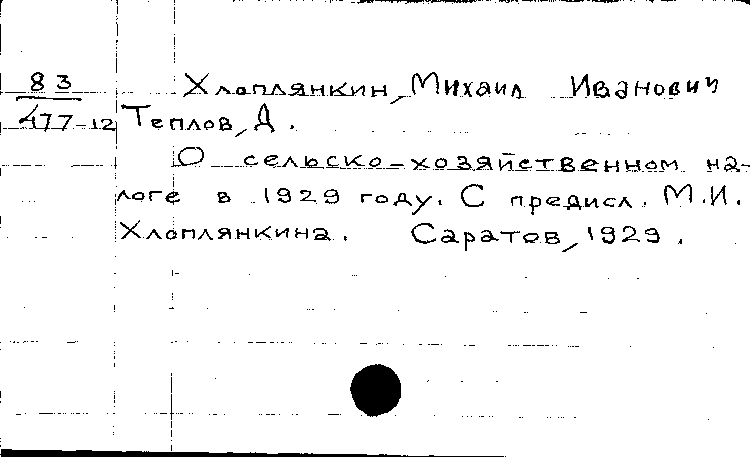 83 Хлоплянкин, Михаил Иванович
477-12 Теплов, Д.
О сельско-хозяйственном на-
логе в 1929 году. С предисл. М.И.
Хлоплянкина. Саратов, 1929.